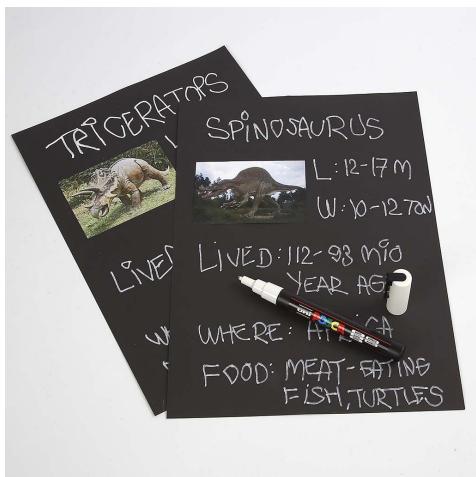 TRICERATOPS
LIVED
SPINOSAURUS
L: 12-17 M
W: 10-12 TON
LIVED: 112-93 MIO
YEAR AG
WHERE:
FOOD: MEAT-EATING
FISH, TURTLES